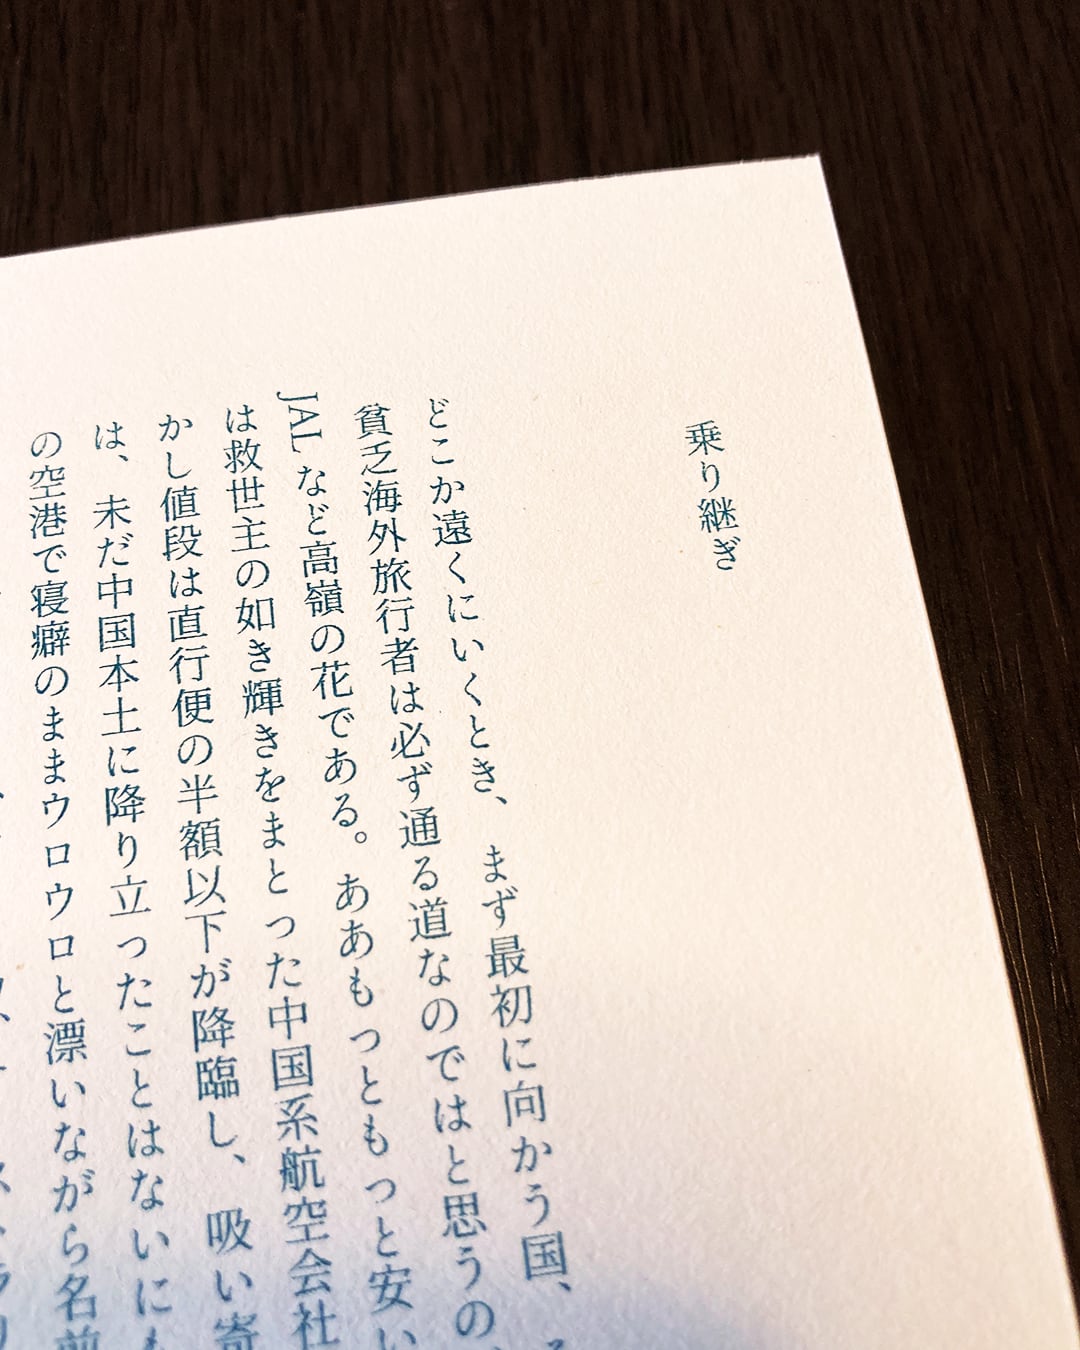 乗り継ぎ
どこか遠くにいくとき、まず最初に向かう国、
貧乏海外旅行者は必ず通る道なのではと思うの、
JALなど高嶺の花である。ああもっともっと安い
は救世主の如き輝きをまとった中国系航空会社
かし値段は直行便の半額以下が降臨し、吸い寄
は、未だ中国本土に降り立ったことはないにも
の空港で寝癖のままウロウロと漂いながら名前